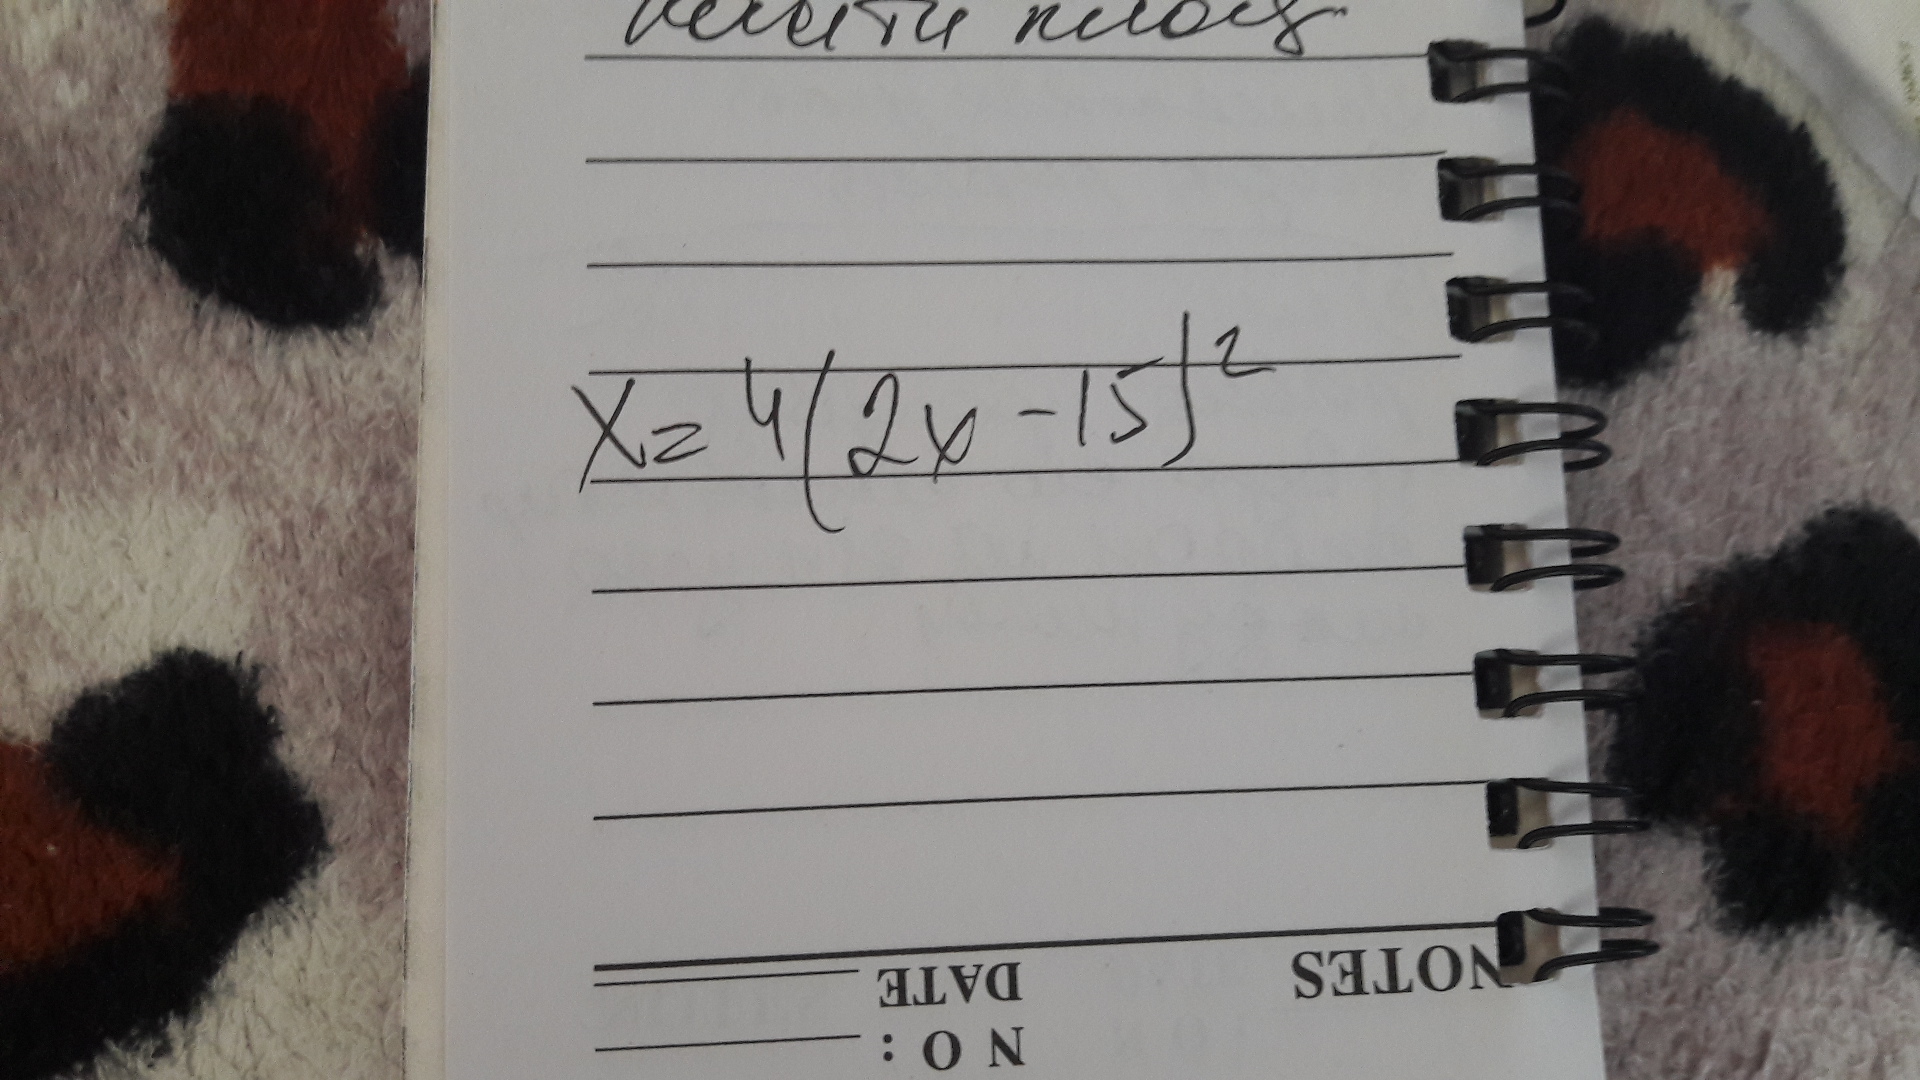 x = 4(2x - 15)²
NOTES
DATE
NO: